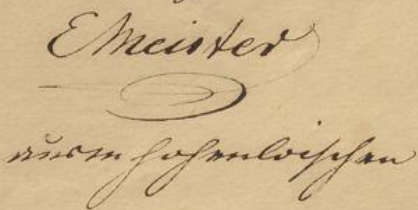 E Meister
ausm Hohenloischen